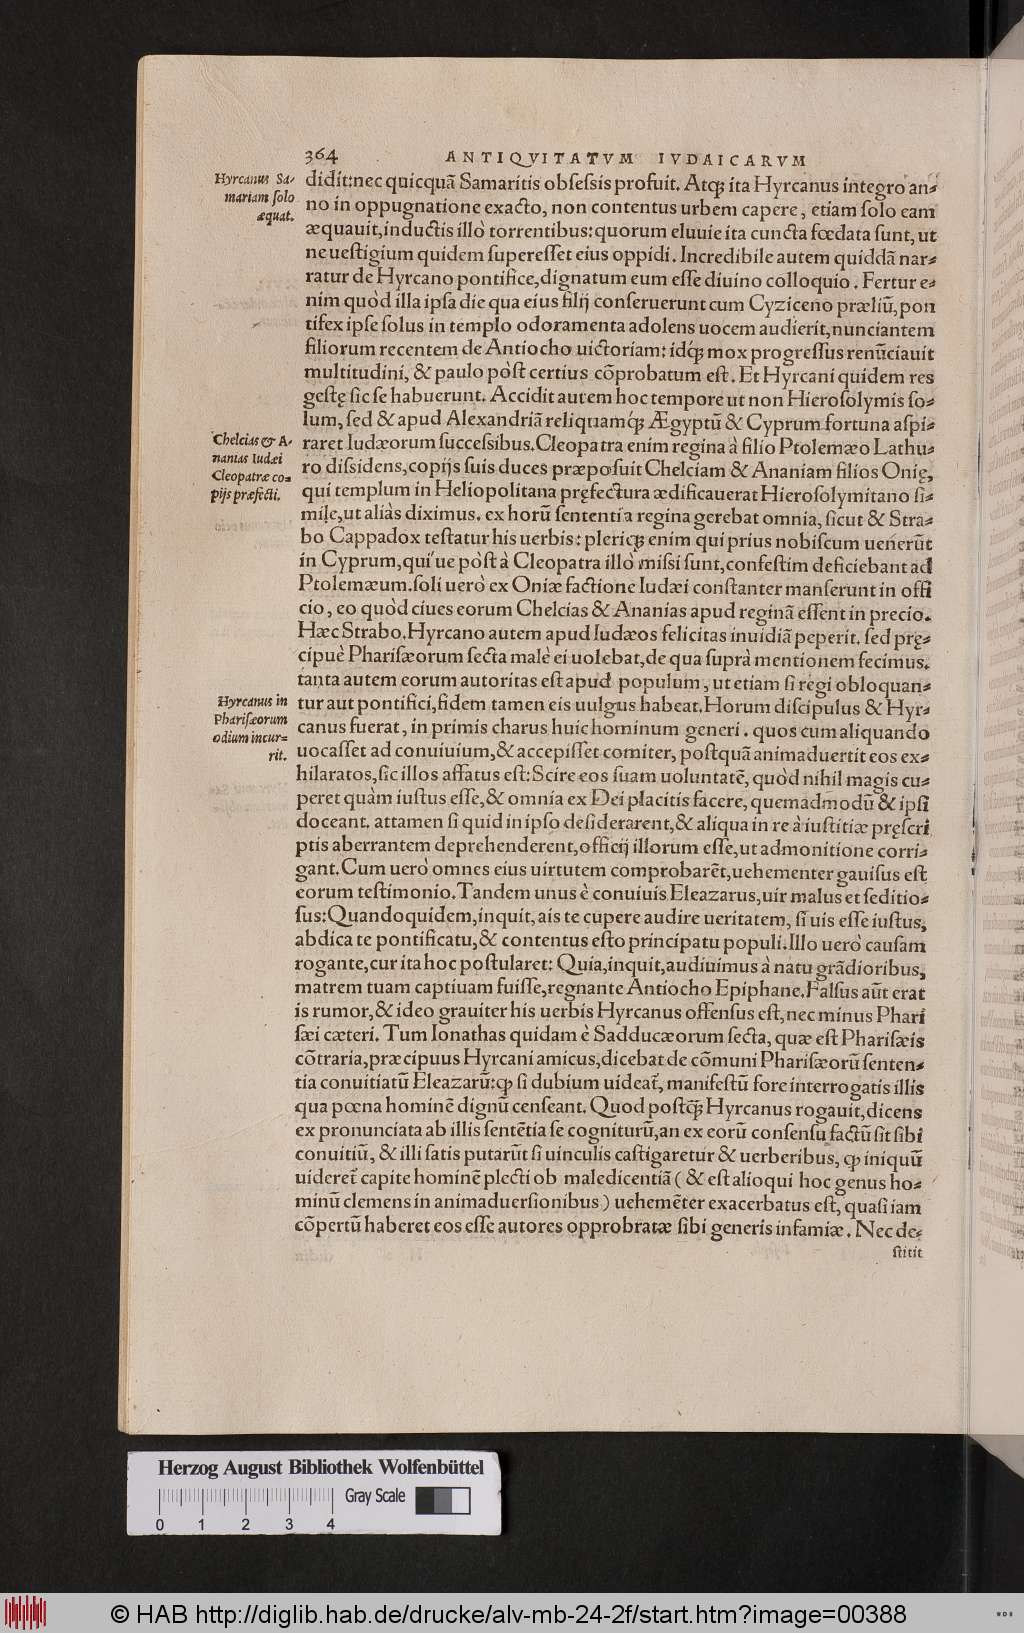 364 ANTIQVITATVM IVDAICARVM
Hyrcanus Sa-
mariam ſolo
æquat.
didit: nec quicquā Samaritis obſeſsis profuit. Atq; ita Hyrcanus integro an-
no in oppugnatione exacto, non contentus urbem capere, etiam ſolo eam
æquauit, inductis illò torrentibus: quorum eluuie ita cuncta fœdata ſunt, ut
ne ueſtigium quidem ſupereſſet eius oppidi. Incredibile autem quiddā nar-
ratur de Hyrcano pontifice, dignatum eum eſſe diuino colloquio. Fertur e-
nim quòd illa ipſa die qua eius filij conſeruerunt cum Cyziceno præliū, pon
tifex ipſe ſolus in templo odoramenta adolens uocem audierit, nunciantem
filiorum recentem de Antiocho uictoriam: idq́; mox progreſſus renūciauit
multitudini, & paulo pòſt certius cōprobatum eſt. Et Hyrcani quidem res
geſtę ſic ſe habuerunt. Accidit autem hoc tempore ut non Hieroſolymis ſo-
lum, ſed & apud Alexandriā reliquamq́; Ægyptū & Cyprum fortuna aſpi-
Chelcias & A-
nanias Iudæi
Cleopatræ co-
pijs præfecti.
raret Iudæorum ſucceſsibus. Cleopatra enim regina à filio Ptolemæo Lathu-
ro diſsidens, copijs ſuis duces præpoſuit Chelciam & Ananiam filios Onię,
qui templum in Heliopolitana pręfectura ædificauerat Hieroſolymitano ſi-
mile, ut aliàs diximus. ex horū ſententia regina gerebat omnia, ſicut & Stra-
bo Cappadox teſtatur his uerbis: pleriq; enim qui prius nobiſcum uenerūt
in Cyprum, qui'ue pòſt à Cleopatra illò miſsi ſunt, confeſtim deficiebant ad
Ptolemæum. ſoli uerò ex Oniæ factione Iudæi conſtanter manſerunt in offi
cio, eo quòd ciues eorum Chelcias & Ananias apud reginā eſſent in precio.
Hæc Strabo. Hyrcano autem apud Iudæos felicitas inuidiā peperit. ſed prę-
cipuè Phariſæorum ſecta malè ei uolebat, de qua ſuprà mentionem fecimus.
tanta autem eorum autoritas eſt apud populum, ut etiam ſi regi obloquan-
Hyrcanus in
Phariſæorum
odium incur-
rit.
tur aut pontifici, fidem tamen eis uulgus habeat. Horum diſcipulus & Hyr-
canus fuerat, in primis charus huic hominum generi. quos cum aliquando
uocaſſet ad conuiuium, & accepiſſet comiter, poſtquā animaduertit eos ex-
hilaratos, ſic illos affatus eſt: Scire eos ſuam uoluntatē, quòd nihil magis cu-
peret quàm iuſtus eſſe, & omnia ex Dei placitis facere, quemadmodū & ipſi
doceant. attamen ſi quid in ipſo deſiderarent, & aliqua in re à iuſtitiæ pręſcri
ptis aberrantem deprehenderent, officij illorum eſſe, ut admonitione corri-
gant. Cum uerò omnes eius uirtutem comprobarēt, uehementer gauiſus eſt
eorum teſtimonio. Tandem unus è conuiuis Eleazarus, uir malus et ſeditio-
ſus: Quandoquidem, inquit, ais te cupere audire ueritatem, ſi uis eſſe iuſtus,
abdica te pontificatu, & contentus eſto principatu populi. Illo uerò cauſam
rogante, cur ita hoc poſtularet: Quia, inquit, audiuimus à natu grādioribus,
matrem tuam captiuam fuiſſe, regnante Antiocho Epiphane. Falſus aūt erat
is rumor, & ideo grauiter his uerbis Hyrcanus offenſus eſt, nec minus Phari
ſæi cæteri. Tum Ionathas quidam è Sadducæorum ſecta, quæ eſt Phariſæis
cōtraria, præcipuus Hyrcani amicus, dicebat de cōmuni Phariſæorū ſenten-
tia conuitiatū Eleazarū: ꝙ ſi dubium uideat̃, manifeſtū fore interrogatis illis
qua pœna hominē dignū cenſeant. Quod poſtq̃; Hyrcanus rogauit, dicens
ex pronunciata ab illis ſentētia ſe cogniturū, an ex eorū conſenſu factū ſit ſibi
conuitiū, & illi ſatis putarūt ſi uinculis caſtigaretur & uerberibus, ꝙ iniquū
uideret̃ capite hominē plecti ob maledicentiā (& eſt alioqui hoc genus ho-
minū clemens in animaduerſionibus) uehemēter exacerbatus eſt, quaſi iam
cōpertū haberet eos eſſe autores opprobratæ ſibi generis infamiæ. Nec de-
ſtitit
Herzog August Bibliothek Wolfenbüttel
Gray Scale
0 1 2 3 4
© HAB http://diglib.hab.de/drucke/alv-mb-24-2f/start.htm?image=00388